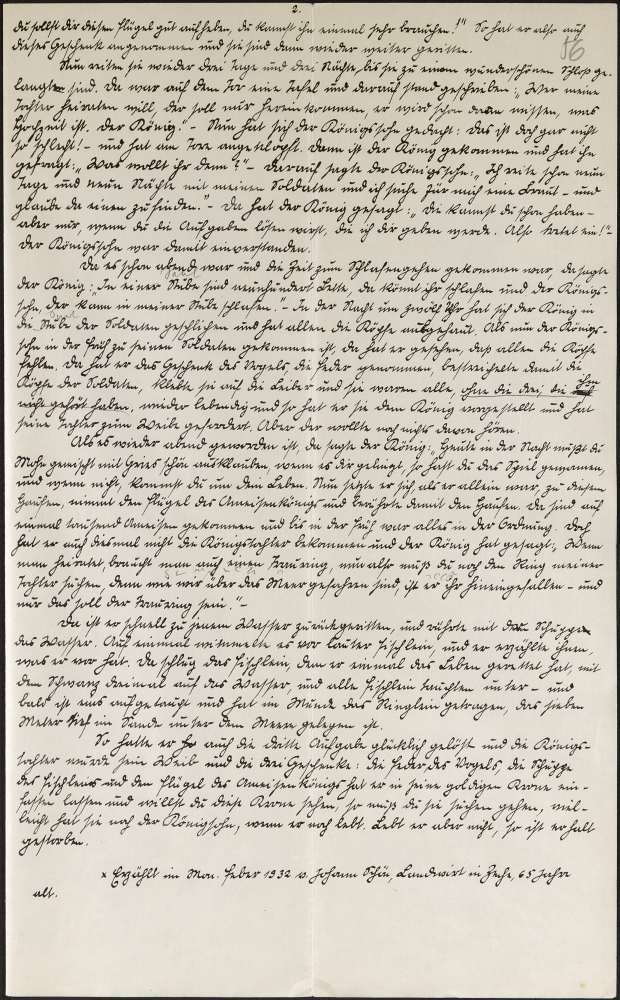 2.
du sollst dir diesen Flügel gut aufheben, du kannst ihn einmal sehr brauchen!" So hat er also auch
56
dieses Geschenk angenommen und sie sind dann wieder weiter geritten.
Nun reiten sie wieder drei Tage und drei Nächte, bis sie zu einem wunderschönen Schloß ge-
langten sind. Da war auf dem Tor eine Tafel und darauf stand geschrieben: „Wer meine
Tochter heiraten will der soll nur hereinkommen, er wird schon dann wissen, was
Hochzeit ist. Der König." - Nun hat sich der Königssohn gedacht: Das ist doch gar nicht
so schlecht! - und hat am Tore angeklopft. Dann ist der König gekommen und hat ihn
gefragt: „Was wollt ihr denn?" - Darauf sagte der Königssohn: „Ich reite schon neun
Tage und neun Nächte mit meinen Soldaten und ich suche für mich eine Braut - und
glaube da einen zu finden." - Da hat der König gesagt: „Die kannst du schon haben -
aber nur, wenn du die Aufgaben lösen wirst, die ich dir geben werde. Also tretet ein!"
Der Königssohn war damit einverstanden.
Da es schon abend war und die Zeit zum Schlafengehen gekommen war, da sagte
der König: „In einer Stube sind neunhundert Bette, da könnt ihr schlafen und der Königs-
sohn, der kann in meiner Stube schlafen." - In der Nacht um zwölf Uhr hat sich der König in
die Stube der Soldaten geschlichen und hat allen die Köpfe abgehaut. Als nun der Königs-
sohn in der Früh zu seinen Soldaten gekommen ist, da hat er gesehen, daß allen die Köpfe
fehlen. Da hat er das Geschenk des Vogels, die Feder genommen, bestreichelte damit die
Köpfe der Soldaten, klebte sie auf die Leiber und sie waren alle, ohne die drei, die ihm
nicht gehört haben, wieder lebendig und so hat er sie dem König vorgestellt und hat
seine Tochter zum Weibe gefordert. Aber der wollte noch nichts davon hören.
Als es wieder abend geworden ist, da sagte der König: „Heute in der Nacht mußt du
Mohn gemischt mit Gries schön ausklauben, wenn es dir gelingt, so hast du das Spiel gewonnen,
und wenn nicht, kommst du um dein Leben. Nun setzte er sich, als er allein war, zu diesem
Haufen, nimmt den Flügel des Ameisenkönigs und berührte damit den Haufen. Da sind auf
einmal tausend Ameisen gekommen und bis in der Früh war alles in der Ordnung. Doch
hat er auch diesmal nicht die Königstochter bekommen und der König hat gesagt: „Wenn
man heiratet, braucht man auch einen Trauring, nun also muß du noch den Ring meiner
Tochter suchen, denn wie wir über das Meer gefahren sind, ist er ihr hineingefallen - und
nur das soll der Trauring sein!" -
Da ist er schnell zu jenem Wasser zurückgeritten, und rührte mit der Schuppe
das Wasser. Auf einmal wimmelte es vor lauter Fischlein, und er erzählte ihnen,
was er vor hat. Da schlug das Fischlein, dem er einmal das Leben gerettet hat, mit
dem Schwanz dreimal auf das Wasser, und alle Fischlein tauchten unter - und
bald ist eins aufgetaucht und hat im Munde das Ringlein getragen, das sieben
Meter tief im Sande unter dem Meere gelegen ist.
So hatte er auch die dritte Aufgabe glücklich gelöst und die Königs-
tochter wurde sein Weib und die drei Geschenke: die Feder des Vogels, die Schuppe
des Fischleins und den Flügel des Ameisenkönigs hat er in seine goldigen Krone ein-
fassen lassen und willst du diese Krone sehen, so muß du sie suchen gehen, viel-
leicht hat sie noch der Königssohn, wenn er noch lebt. Lebt er aber nicht, so ist er halt
gestorben.
x Erzählt im Mon. Feber 1932 v. Johann Schön, Landwirt in Zeche, 65 Jahre
alt.